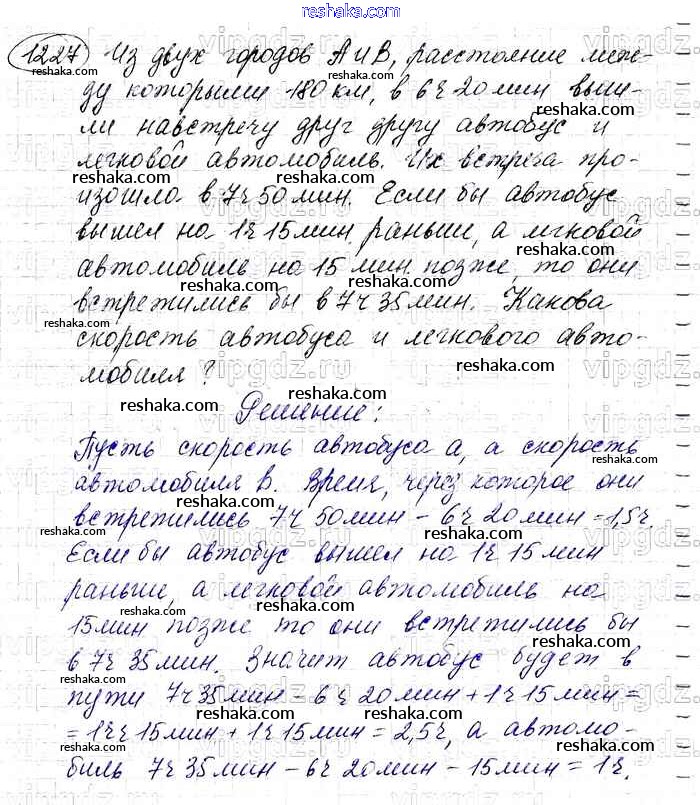 reshaka.com
1227 Из двух городов А и В, расстояние меж-
ду которыми 180 км, в 6 ч 20 мин выш-
ли навстречу друг другу автобус и
легковой автомобиль. Их встреча про-
изошла в 7 ч 50 мин. Если бы автобус
вышел на 1 ч 15 мин. раньше, а легковой
автомобиль на 15 мин. позже, то они
встретились бы в 7 ч 35 мин. Какова
скорость автобуса и легкового авто-
мобиля?
Решение:
Пусть скорость автобуса а, а скорость
автомобиля в. Время, через которое они
встретились 7 ч 50 мин - 6 ч 20 мин = 1,5 ч.
Если бы автобус вышел на 1 ч 15 мин
раньше, а легковой автомобиль на
15 мин позже то они встретились бы
в 7 ч 35 мин. Значит автобус будет в
пути 7 ч 35 мин - 6 ч 20 мин + 1 ч 15 мин =
= 1 ч 15 мин + 1 ч 15 мин = 2,5 ч, а автомо-
биль 7 ч 35 мин - 6 ч 20 мин - 15 мин = 1 ч.